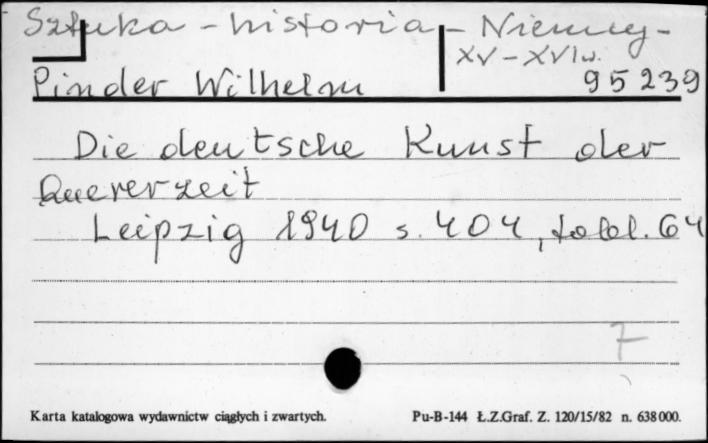 Sztuka - historia - Niemcy -
XV - XVI w.
Pinder Wilhelm 95239
Die deutsche Kunst der
Duererzeit
Leipzig 1940 s. 404, tabl. 64
7
Karta katalogowa wydawnictw ciągłych i zwartych. Pu-B-144 Ł.Z.Graf. Z. 120/15/82 n. 638000.